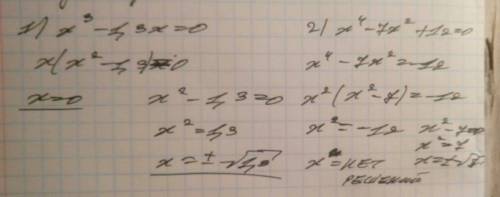 1) x³ - 1,3x = 0
x(x² - 1,3) = 0
x = 0
x² - 1,3 = 0
x² = 1,3
x = ± √1,3
2) x⁴ - 7x² + 12 = 0
x⁴ - 7x² = -12
x² (x² - 7) = -12
x² = -12
x² - 7 = 0
x² = 7
x = ± √7
x = НЕТ
РЕШЕНИЙ